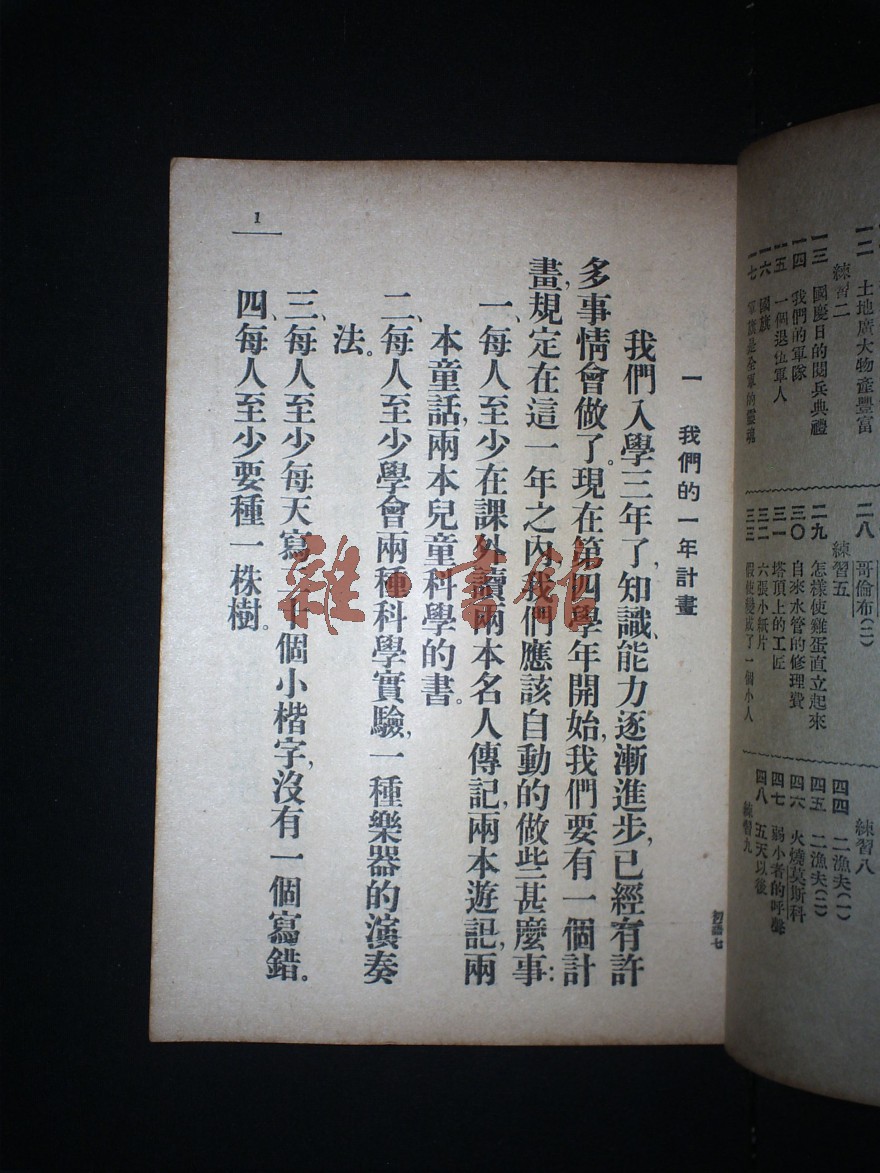 一二 土地廣大物產豐富
練習二
一三 國慶日的閱兵典禮
一四 我們的軍隊
一五 一個退伍軍人
一六 國旗
一七 軍旗是全軍的靈魂
二八 哥倫布(二)
練習五
二九 怎樣使雞蛋直立起來
三〇 自來水管的修理費
三一 塔頂上的工匠
三二 六張小紙片
三三 假使變成了一個小人
練習八
四四 二漁夫(一)
四五 二漁夫(二)
四六 火燒莫斯科
四七 弱小者的呼聲
四八 五天以後
練習九
初語七
一 我們的一年計畫
我們入學三年了,知識、能力逐漸進步,已經有許
多事情會做了。現在第四學年開始,我們要有一個計
畫,規定在這一年之內我們應該自動的做些甚麼事:
一、每人至少在課外讀兩本名人傳記,兩本遊記,兩
本童話,兩本兒童科學的書。
二、每人至少學會兩種科學實驗,一種樂器的演奏
法。
三、每人至少每天寫 十個小楷字,沒有一個寫錯。
四、每人至少要種一株樹。
1
雜·書館